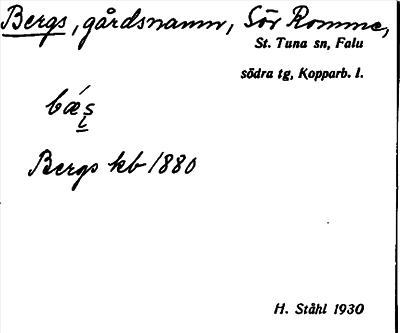 Bergs, gårdsnamn, Sör Romme,
St. Tuna sn, Falu
södra tg, Kopparb. l.
Bergs kb 1880
H. Ståhl 1930